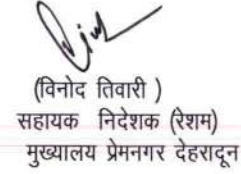 (विनोद तिवारी )
सहायक निदेशक (रेशम)
मुख्यालय प्रेमनगर देहरादून